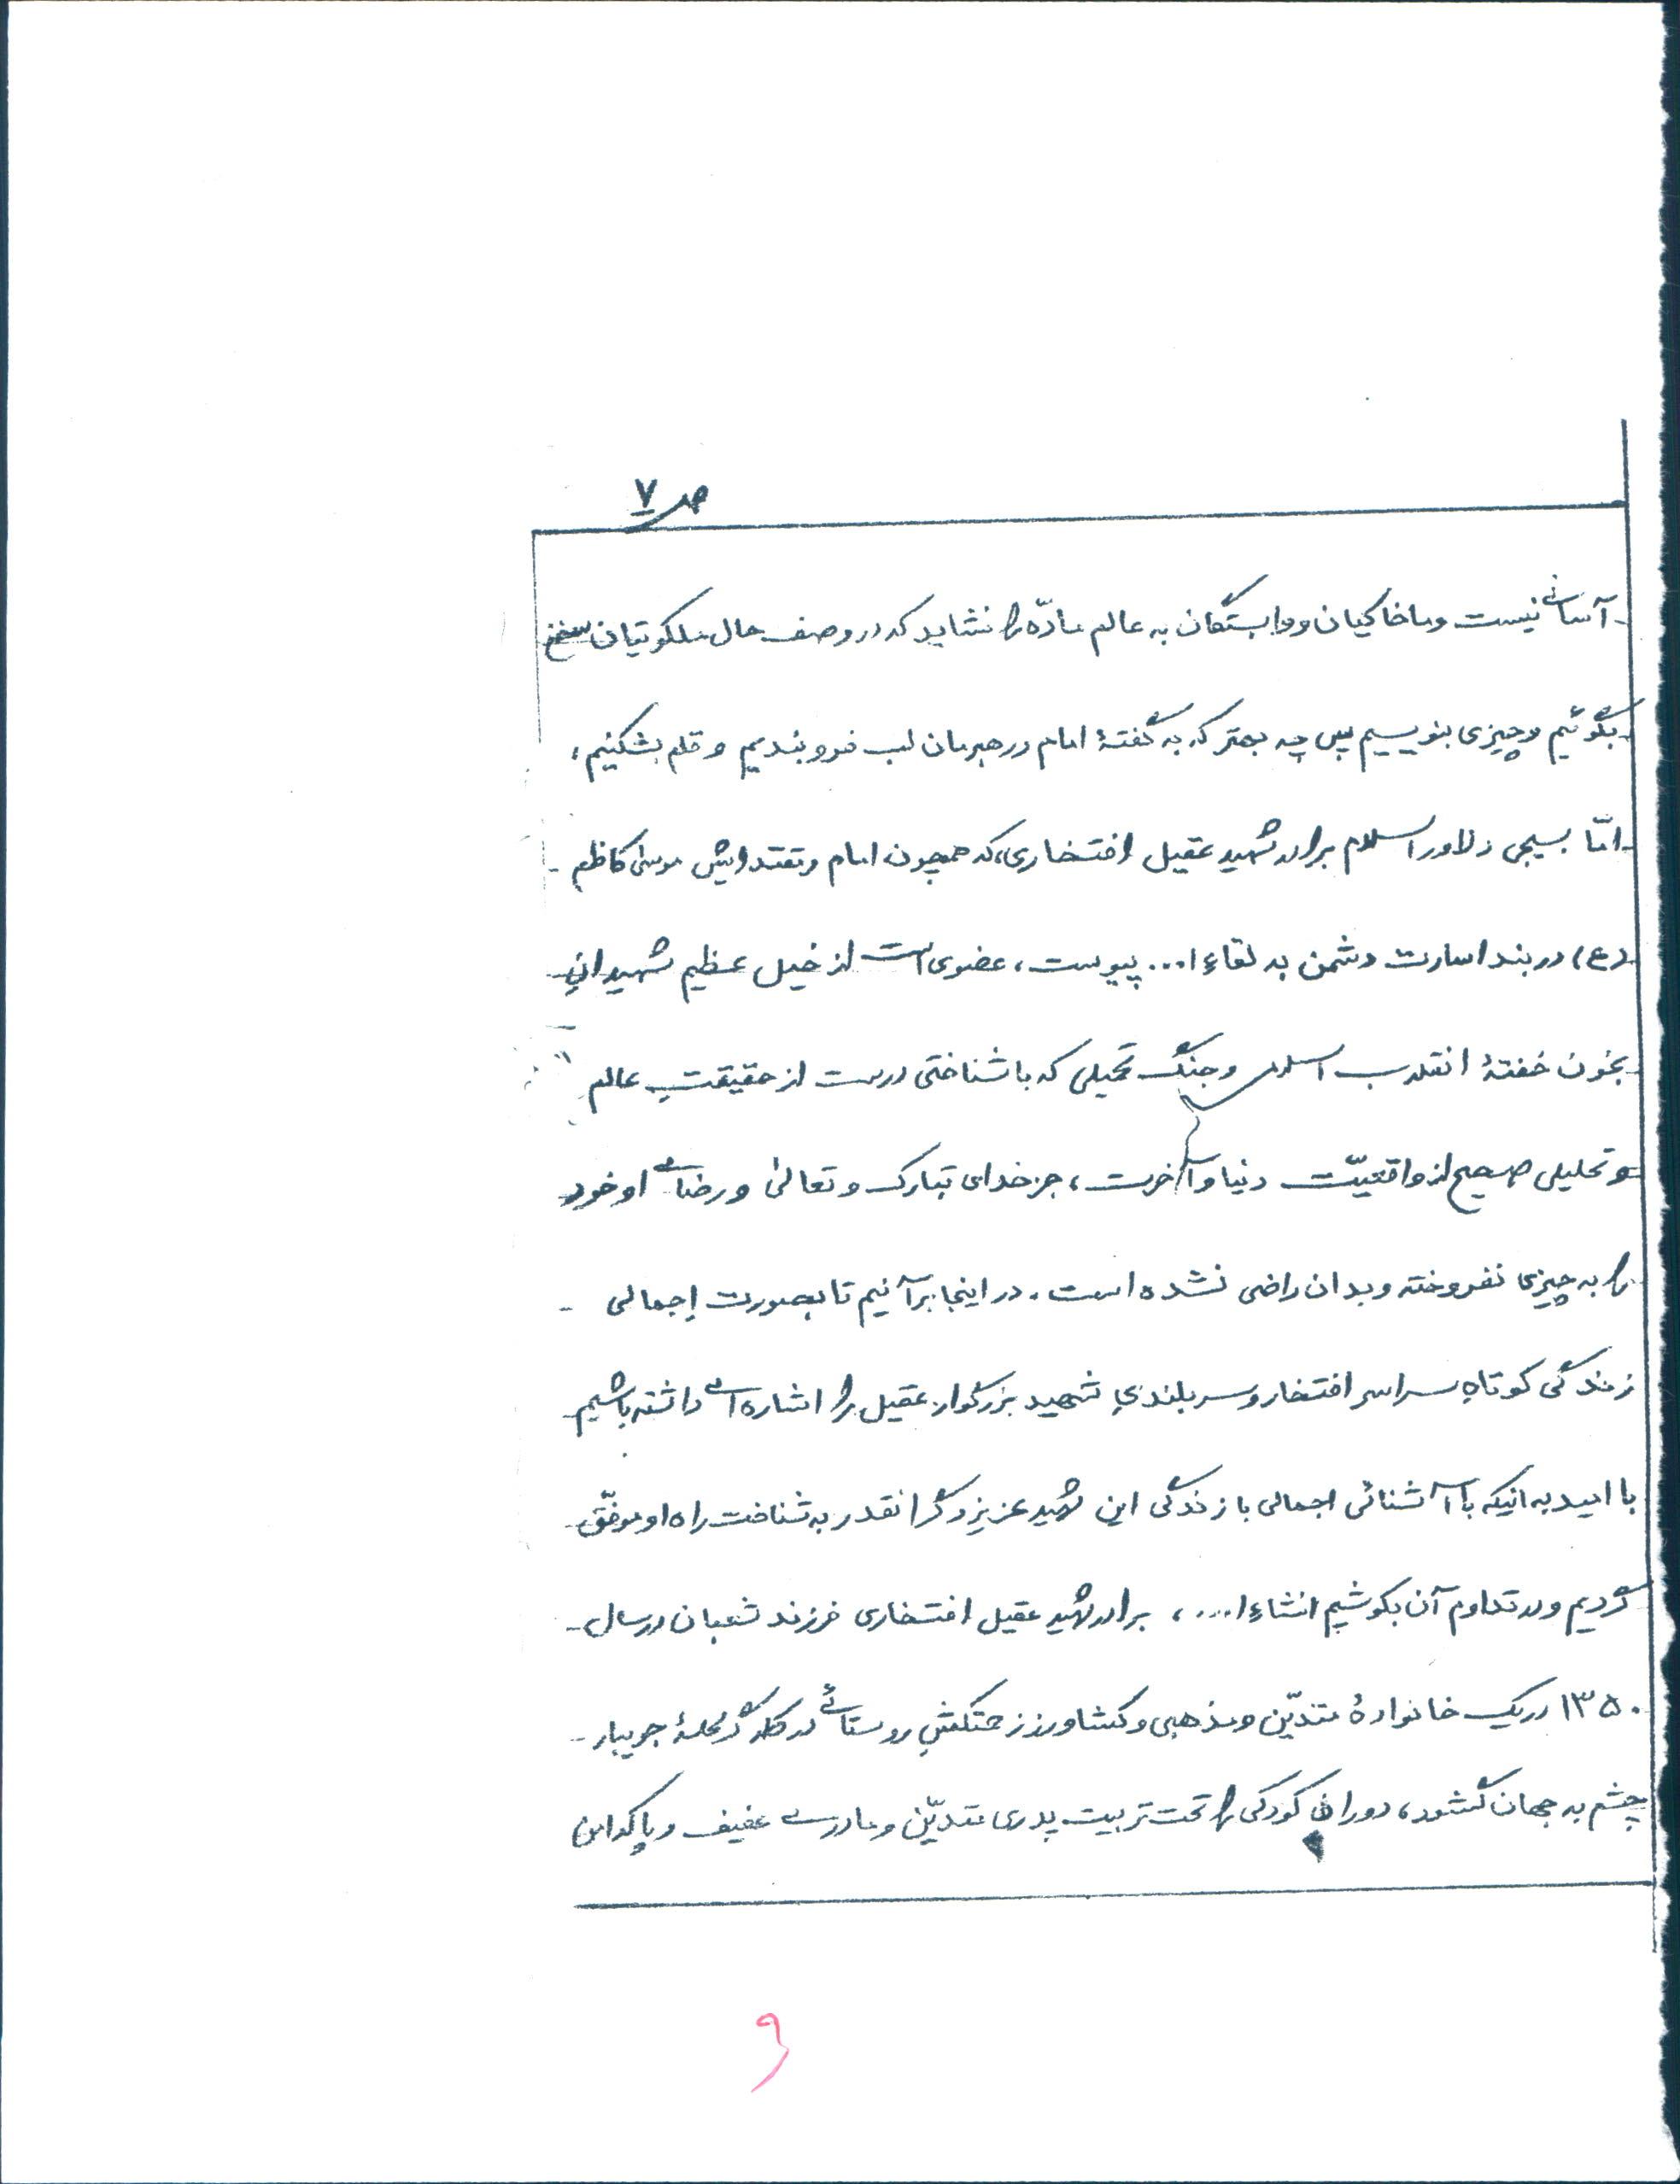 ص ۷
آسانی نیست و ما خاکیان و وابستگان به عالم مادّه را نشاید که در وصف حال ملکوتیان سخن
بگوئیم و چیزی بنویسیم پس چه بهتر که به گفتۀ امام و رهبرمان لب فرو بندیم و قلم بشکنیم،
امّا بسیجی دلاور اسلام برادر شهید عقیل افتخاری، که همچون امام و مقتدایش موسی کاظم -
(ع) در بند اسارت دشمن به لقاءِ ا... پیوست، عضوی است از خیل عظیم شهیدانِ
بخون خفتۀ انقلاب اسلامی و جنگ تحمیلی که با شناختی درست از حقیقتِ عالم
و تحلیلی صحیح از واقعیّت دنیا و آخرت، جز خدای تبارک و تعالی و رضای او خود
را به چیزی نفروخته و بدان راضی نشده است. در اینجا برآنیم تا بصورت اِجمالی -
زندگی کوتاهِ سراسر افتخار و سربلندیِ شهید بزرگوار عقیل را اشاره ای داشته باشیم
با امید به اینکه با آشنائی اجمالی با زندگی این شهید عزیز و گرانقدر به شناخت راه او موفّق -
گردیم و در تداوم آن بکوشیم انشاءِا...، برادر شهید عقیل افتخاری فرزند شعبان در سال -
۱۳۵۰ در یک خانوادۀ متدیّن و مذهبی و کشاورز زحتکشِ روستائی در کلاگر محلۀ جویبار -
چشم به جهان گشود، دوران کودکی را تحت تربیت پدری متدیّن و مادری عفیف و پاکدامن
۹